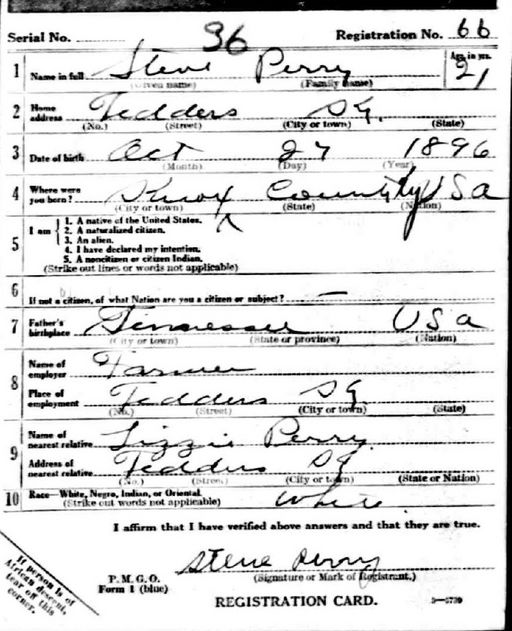 Serial No. 36 Registration No. 66
1 Name in full Steve Perry Age, in yrs. 21
(Given name) (Family name)
2 Home address Tedders
(No.) (Street) (City or town) (State)
3 Date of birth Oct 27 1896
(Month) (Day) (Year)
4 Where were you born? Knox County USa
(City or town) (State) (Nation)
5 I am
1. A native of the United States.
2. A naturalized citizen.
3. An alien.
4. I have declared my intention.
5. A noncitizen or citizen Indian.
(Strike out lines or words not applicable)
6 If not a citizen, of what Nation are you a citizen or subject? —
7 Father's birthplace Tennessee USa
(City or town) (State or province) (Nation)
8 Name of employer Farmer
Place of employment Tedders
(No.) (Street) (City or town) (State)
9 Name of nearest relative Lizzie Perry
Address of nearest relative Tedders
(No.) (Street) (City or town) (State or Nation)
10 Race—White, Negro, Indian, or Oriental. White
(Strike out words not applicable)
I affirm that I have verified above answers and that they are true.
Steve Perry
P. M. G. O. (Signature or Mark of Registrant.)
Form 1 (blue)
REGISTRATION CARD. 3—5739
If person is of
African descent,
tear off this
corner.